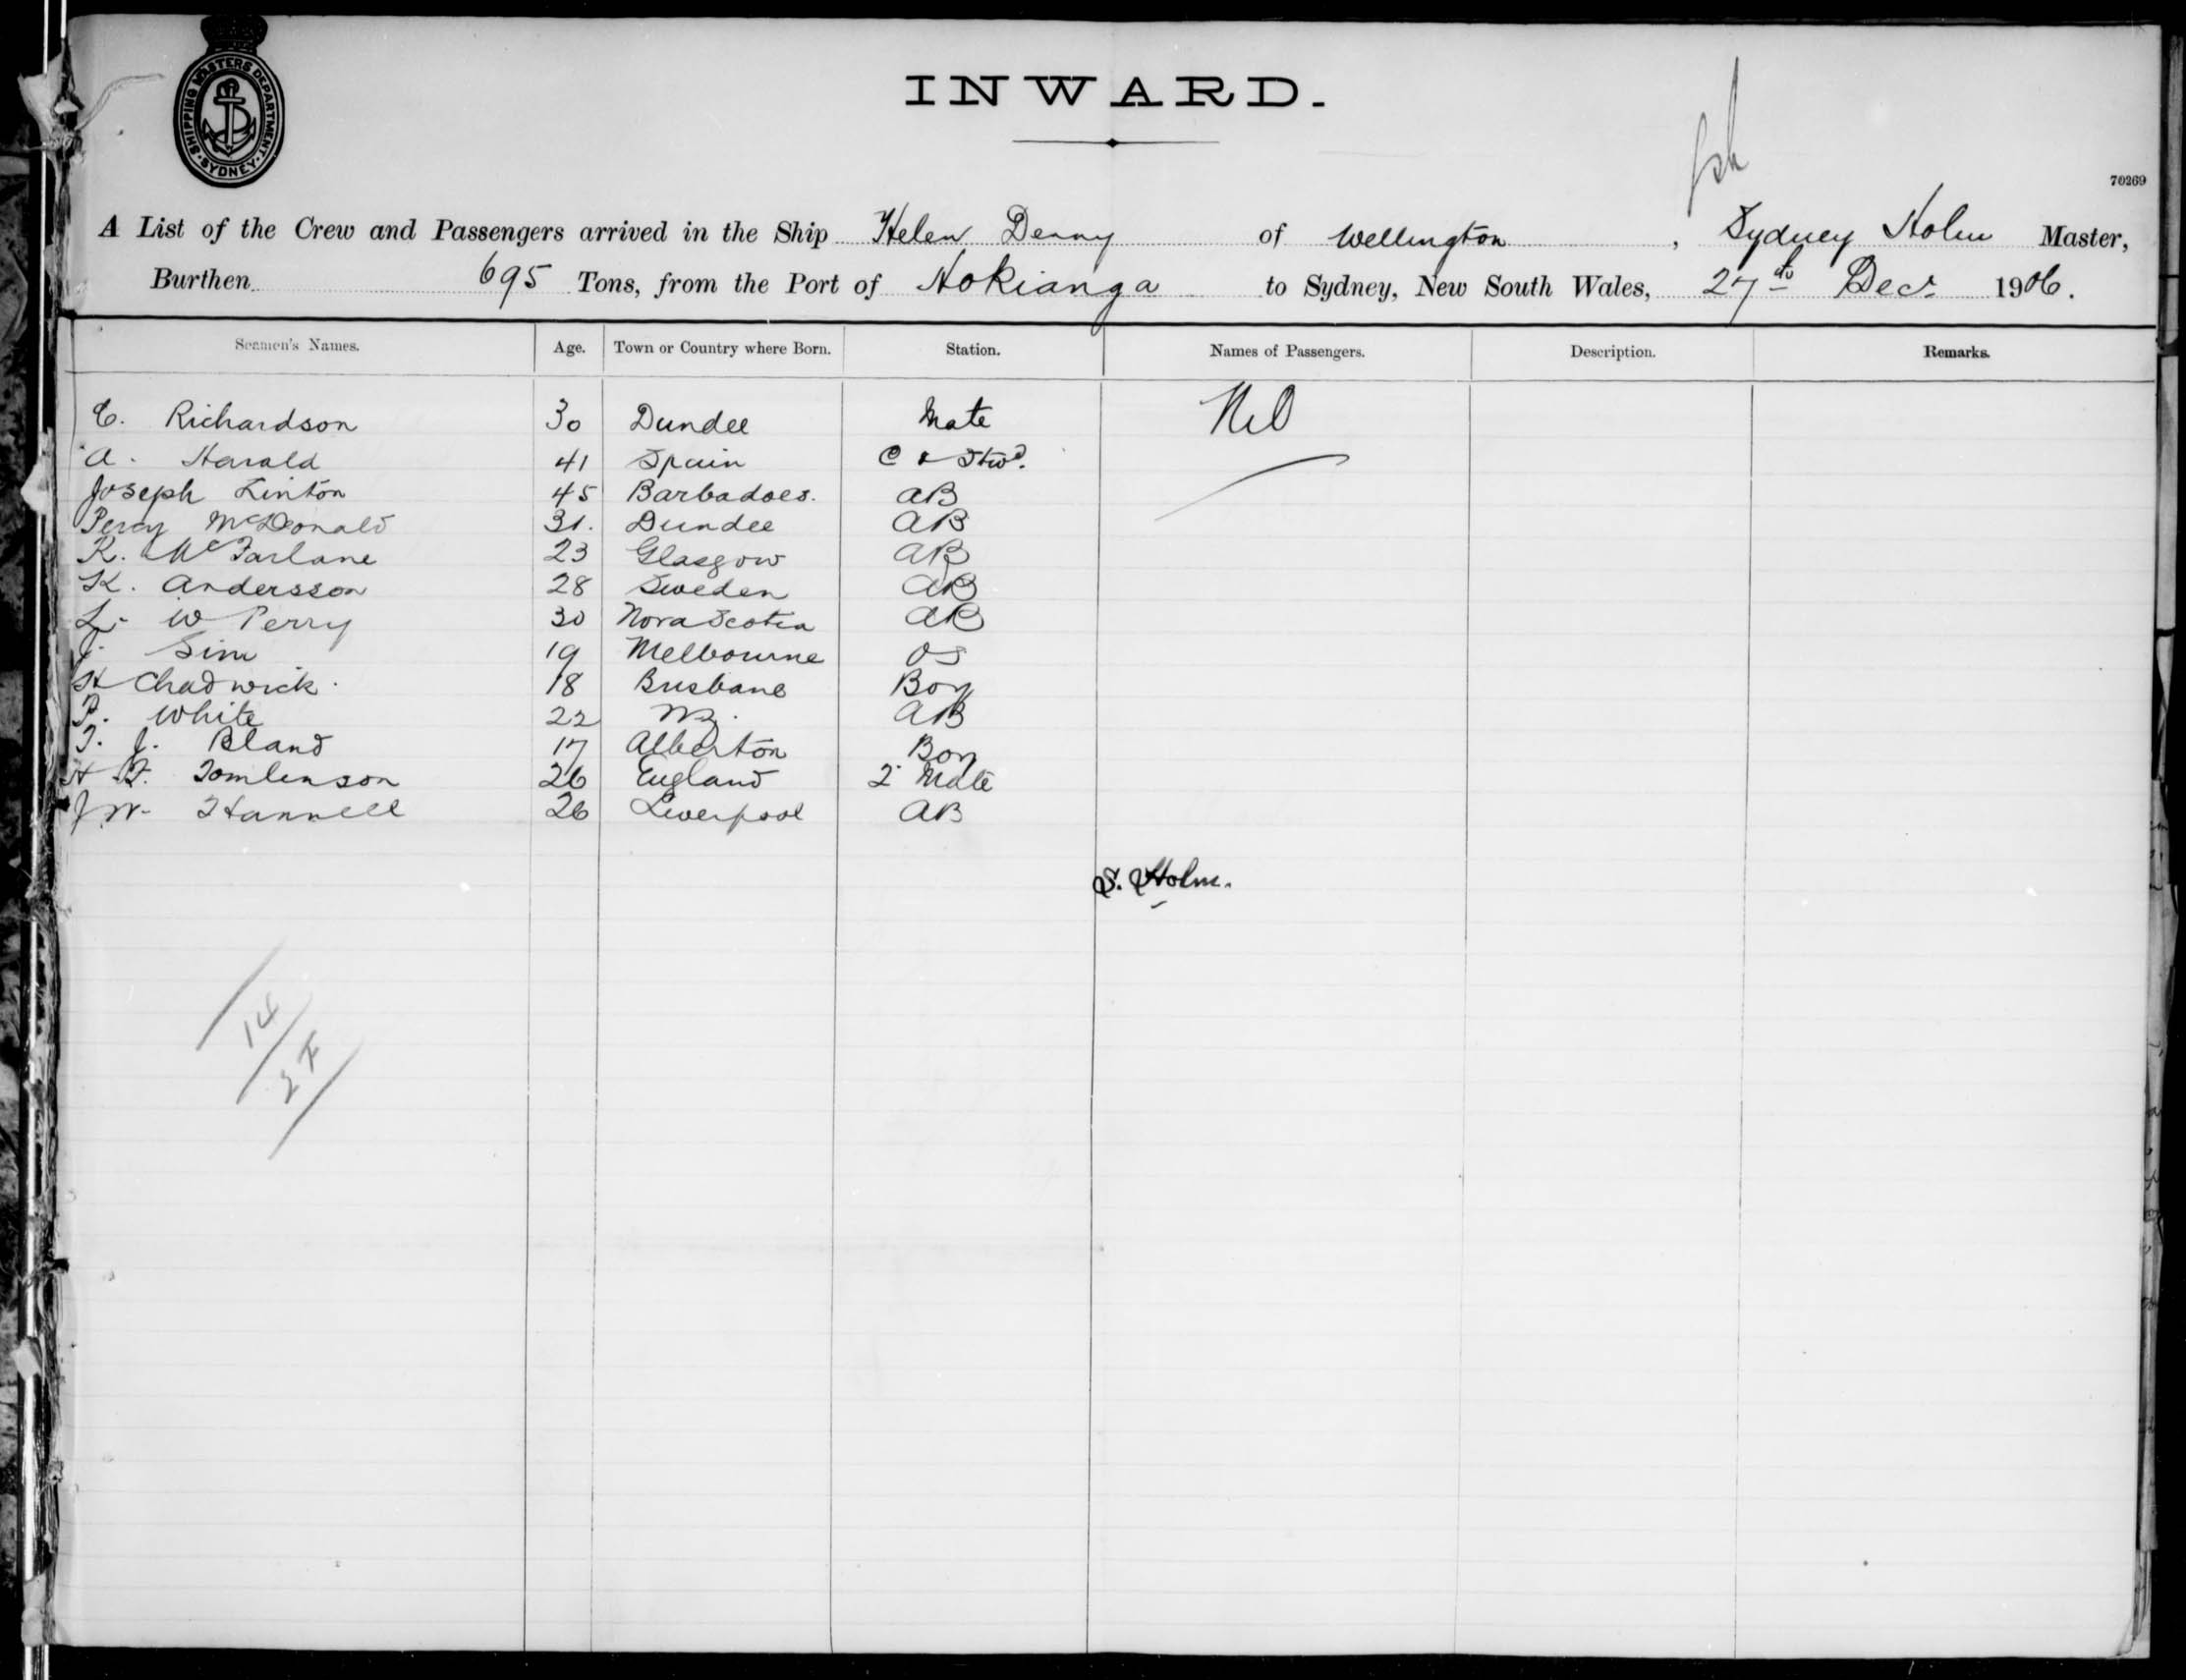 SHIPPING MASTERS DEPARTMENT · SYDNEY ·
INWARD.
70269
A List of the Crew and Passengers arrived in the Ship Helen Denny of Wellington, Sydney Holm Master,
Burthen 695 Tons, from the Port of Hokianga to Sydney, New South Wales, 27th Decr 1906.
Seamen's Names. Age. Town or Country where Born. Station. Names of Passengers. Description. Remarks.
E. Richardson 30 Dundee Mate Nil
A. Harald 41 Spain C & Stwd.
Joseph Linton 45 Barbadoes. AB
Percy McDonald 31. Dundee AB
R. McFarlane 23 Glasgow AB
K. Andersson 28 Sweden AB
L. W Perry 30 Nova Scotia AB
J. Sim 19 Melbourne OS
H Chadwick. 18 Brisbane Boy
P. White 22 NZ. AB
T. J. Bland 17 Alberton Boy
H. F. Tomlinson 26 England 2 Mate
J. W. Hannell 26 Liverpool AB
S. Holm.
14
2 F